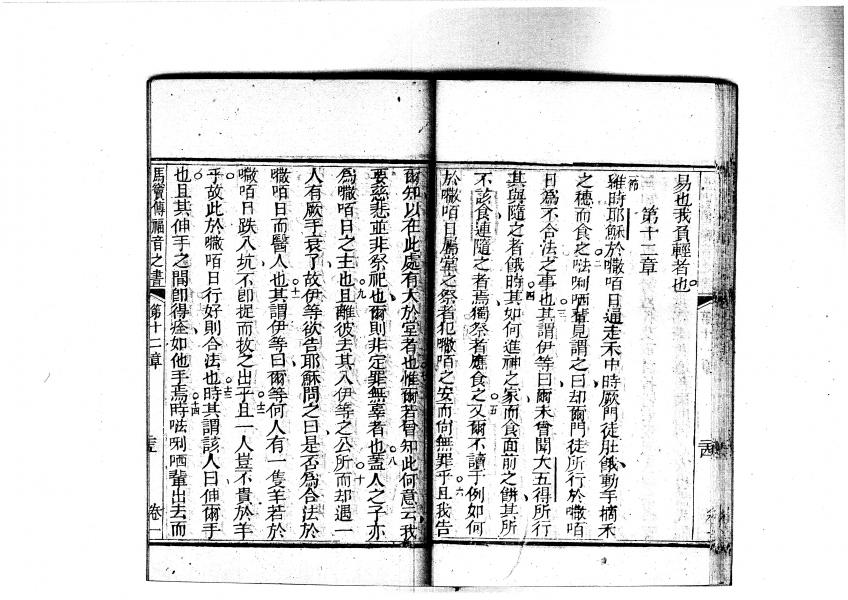 易也我負輕者也
第十二章
維時耶穌於𡂡咟日過走禾中時厥門徒肚餓動手摘禾
之穗而食之㗒唎哂輩見謂之曰却爾門徒所行於𡂡咟
日為不合法之事也其謂伊等曰爾未曾聞大五得所行
其與隨之者餓時其如何進神之家而食面前之餅其所
不該食連隨之者焉獨祭者應食之又爾不讀于例如何
於𡂡咟日屬堂之祭者犯𡂡咟之安而尚無罪乎且我告
爾知以在此處有大於堂者也惟爾若曾知此何意云我
要慈悲並非祭祀也爾則非定罪無辜者也蓋人之子亦
為𡂡咟日之主也且離彼去其入伊等之公所而却遇一
人有厥手衰了故伊等欲告耶穌問之曰是否為合法於
𡂡咟日而醫人也其謂伊等曰爾等何人有一隻羊若於
𡂡咟日跌入坑不即捉而救之出乎且一人豈不貴於羊
乎故此於𡂡咟日行好則合法也時其謂該人曰伸爾手
也且其伸手之間即得痊如他手焉時㗒唎哂輩出去而
馬竇傳福音之書 第十二章 卷一